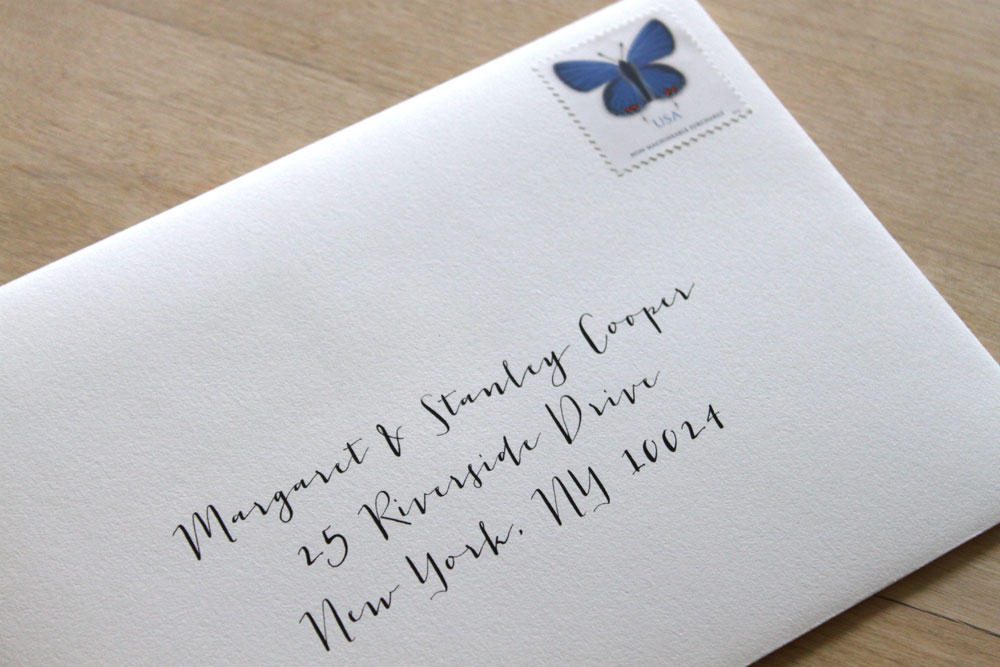 USA
NON-MACHINEABLE SURCHARGE
Margaret & Stanley Cooper
25 Riverside Drive
New York, NY 10024